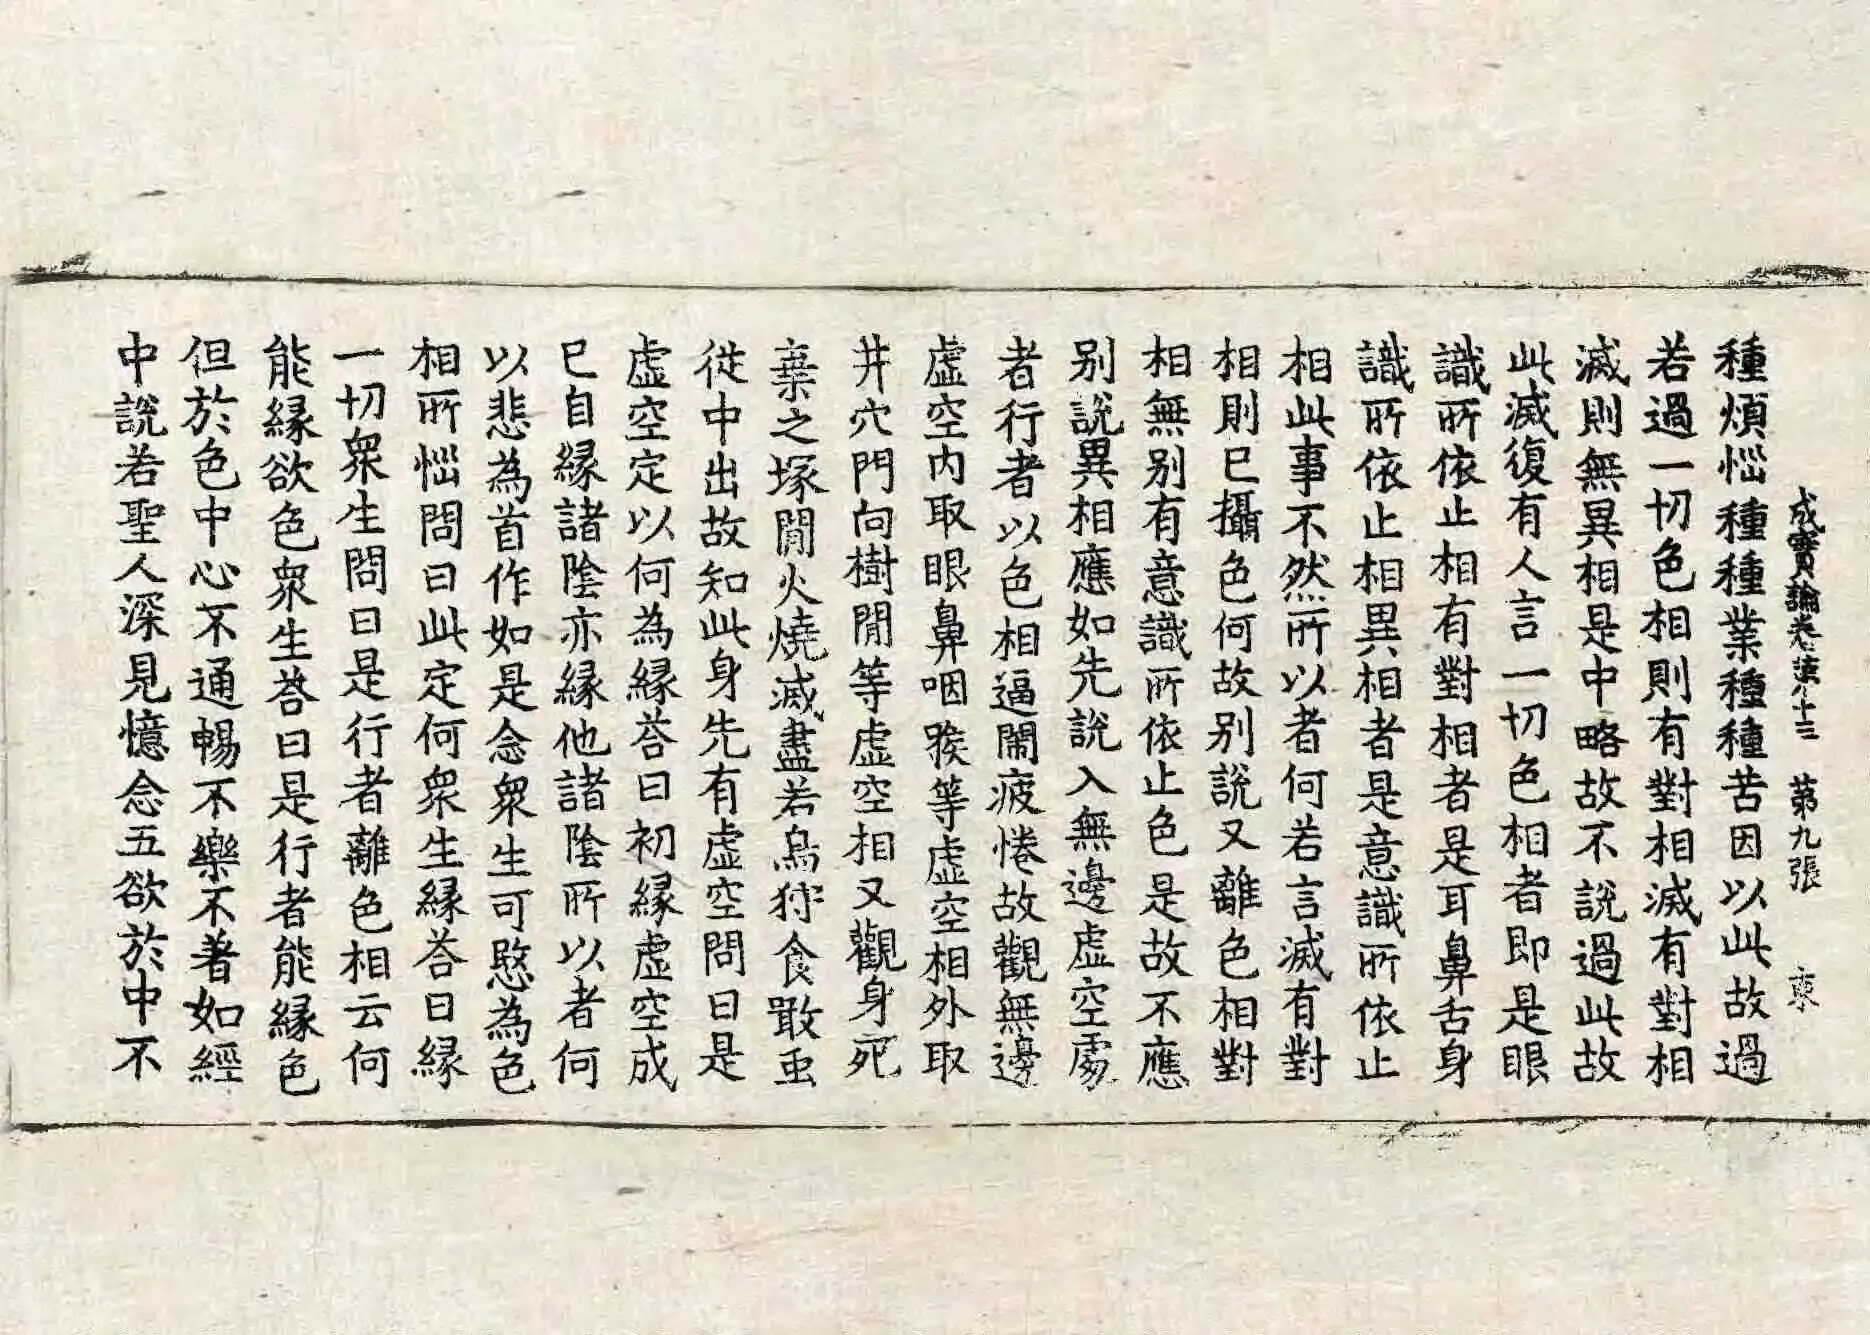 成實論卷第十三　第九張　東
種煩惱種種業種種苦因以此故過
若過一切色相則有對相滅有對相
滅則無異相是中略故不說過此故
此滅復有人言一切色相者即是眼
識所依止相有對相者是耳鼻舌身
識所依止相異相者是意識所依止
相此事不然所以者何若言滅有對
相則已攝色何故别說又離色相對
相無别有意識所依止色是故不應
别說異相應如先說入無邊虛空處
者行者以色相逼鬧疲惓故觀無邊
虛空内取眼鼻咽㗋等虛空相外取
井穴門向樹閒等虛空相又觀身死
棄之塚閒火燒滅盡若烏狩食噉虫
從中出故知此身先有虛空問曰是
虛空定以何為緣答曰初緣虛空成
已自緣諸陰亦緣他諸陰所以者何
以悲為首作如是念衆生可愍為色
相所惱問曰此定何衆生緣答曰緣
一切衆生問曰是行者離色相云何
能緣欲色衆生答曰是行者能緣色
但於色中心不通暢不樂不著如經
中說若聖人深見憶念五欲於中不